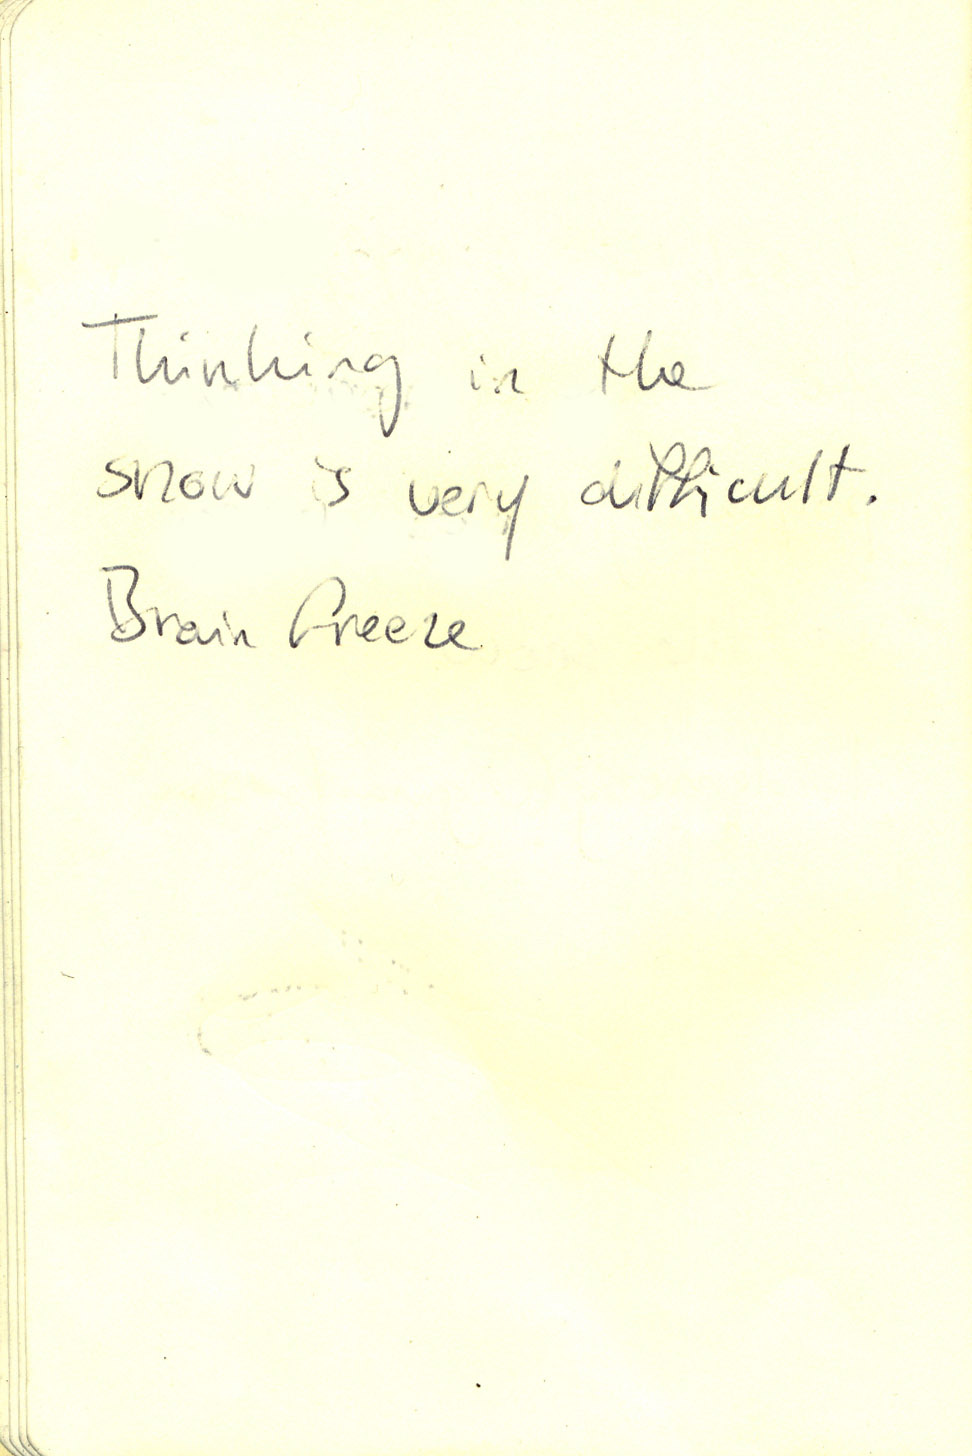 Thinking in the
snow is very difficult.
Brain freeze